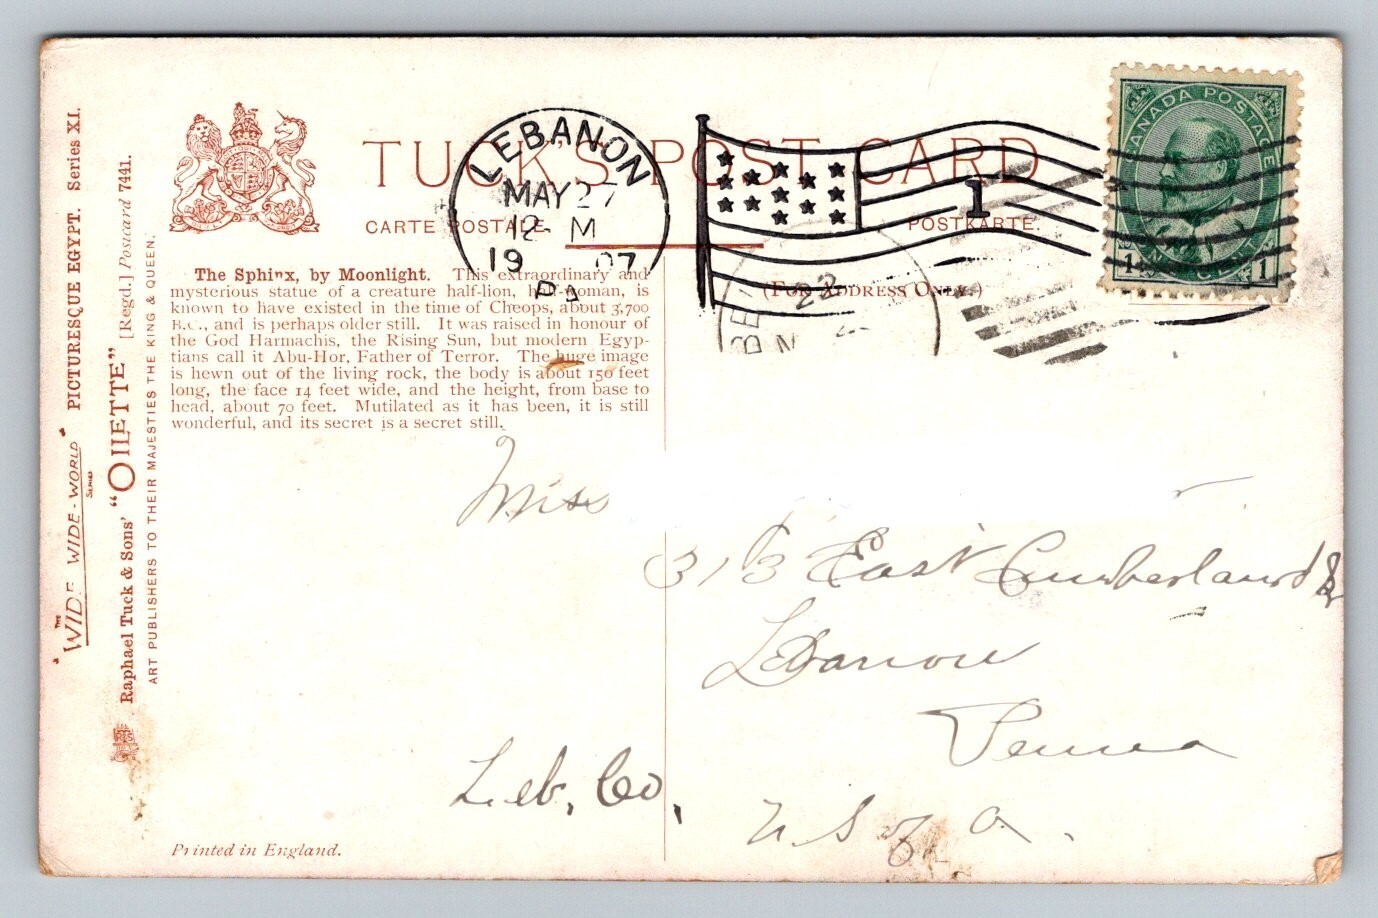 TUCK'S POST CARD
CARTE POSTALE
POSTKARTE.
(FOR ADDRESS ONLY.)
LEBANON
MAY 27
12 M
19 07
PA
1
22
CANADA POSTAGE
1 CENT 1
"THE WIDE-WIDE-WORLD" SERIES PICTURESQUE EGYPT. Series XI.
Raphael Tuck & Sons' "OILETTE" [Regd.] Postcard 7441.
ART PUBLISHERS TO THEIR MAJESTIES THE KING & QUEEN.
The Sphinx, by Moonlight. This extraordinary and
mysterious statue of a creature half-lion, half-woman, is
known to have existed in the time of Cheops, about 3,700
B.C., and is perhaps older still. It was raised in honour of
the God Harmachis, the Rising Sun, but modern Egyp-
tians call it Abu-Hor, Father of Terror. The huge image
is hewn out of the living rock, the body is about 150 feet
long, the face 14 feet wide, and the height, from base to
head, about 70 feet. Mutilated as it has been, it is still
wonderful, and its secret is a secret still.
Miss
313 East Cumberland St
Lebanon
Penna
Leb. Co.
U S of A.
Printed in England.